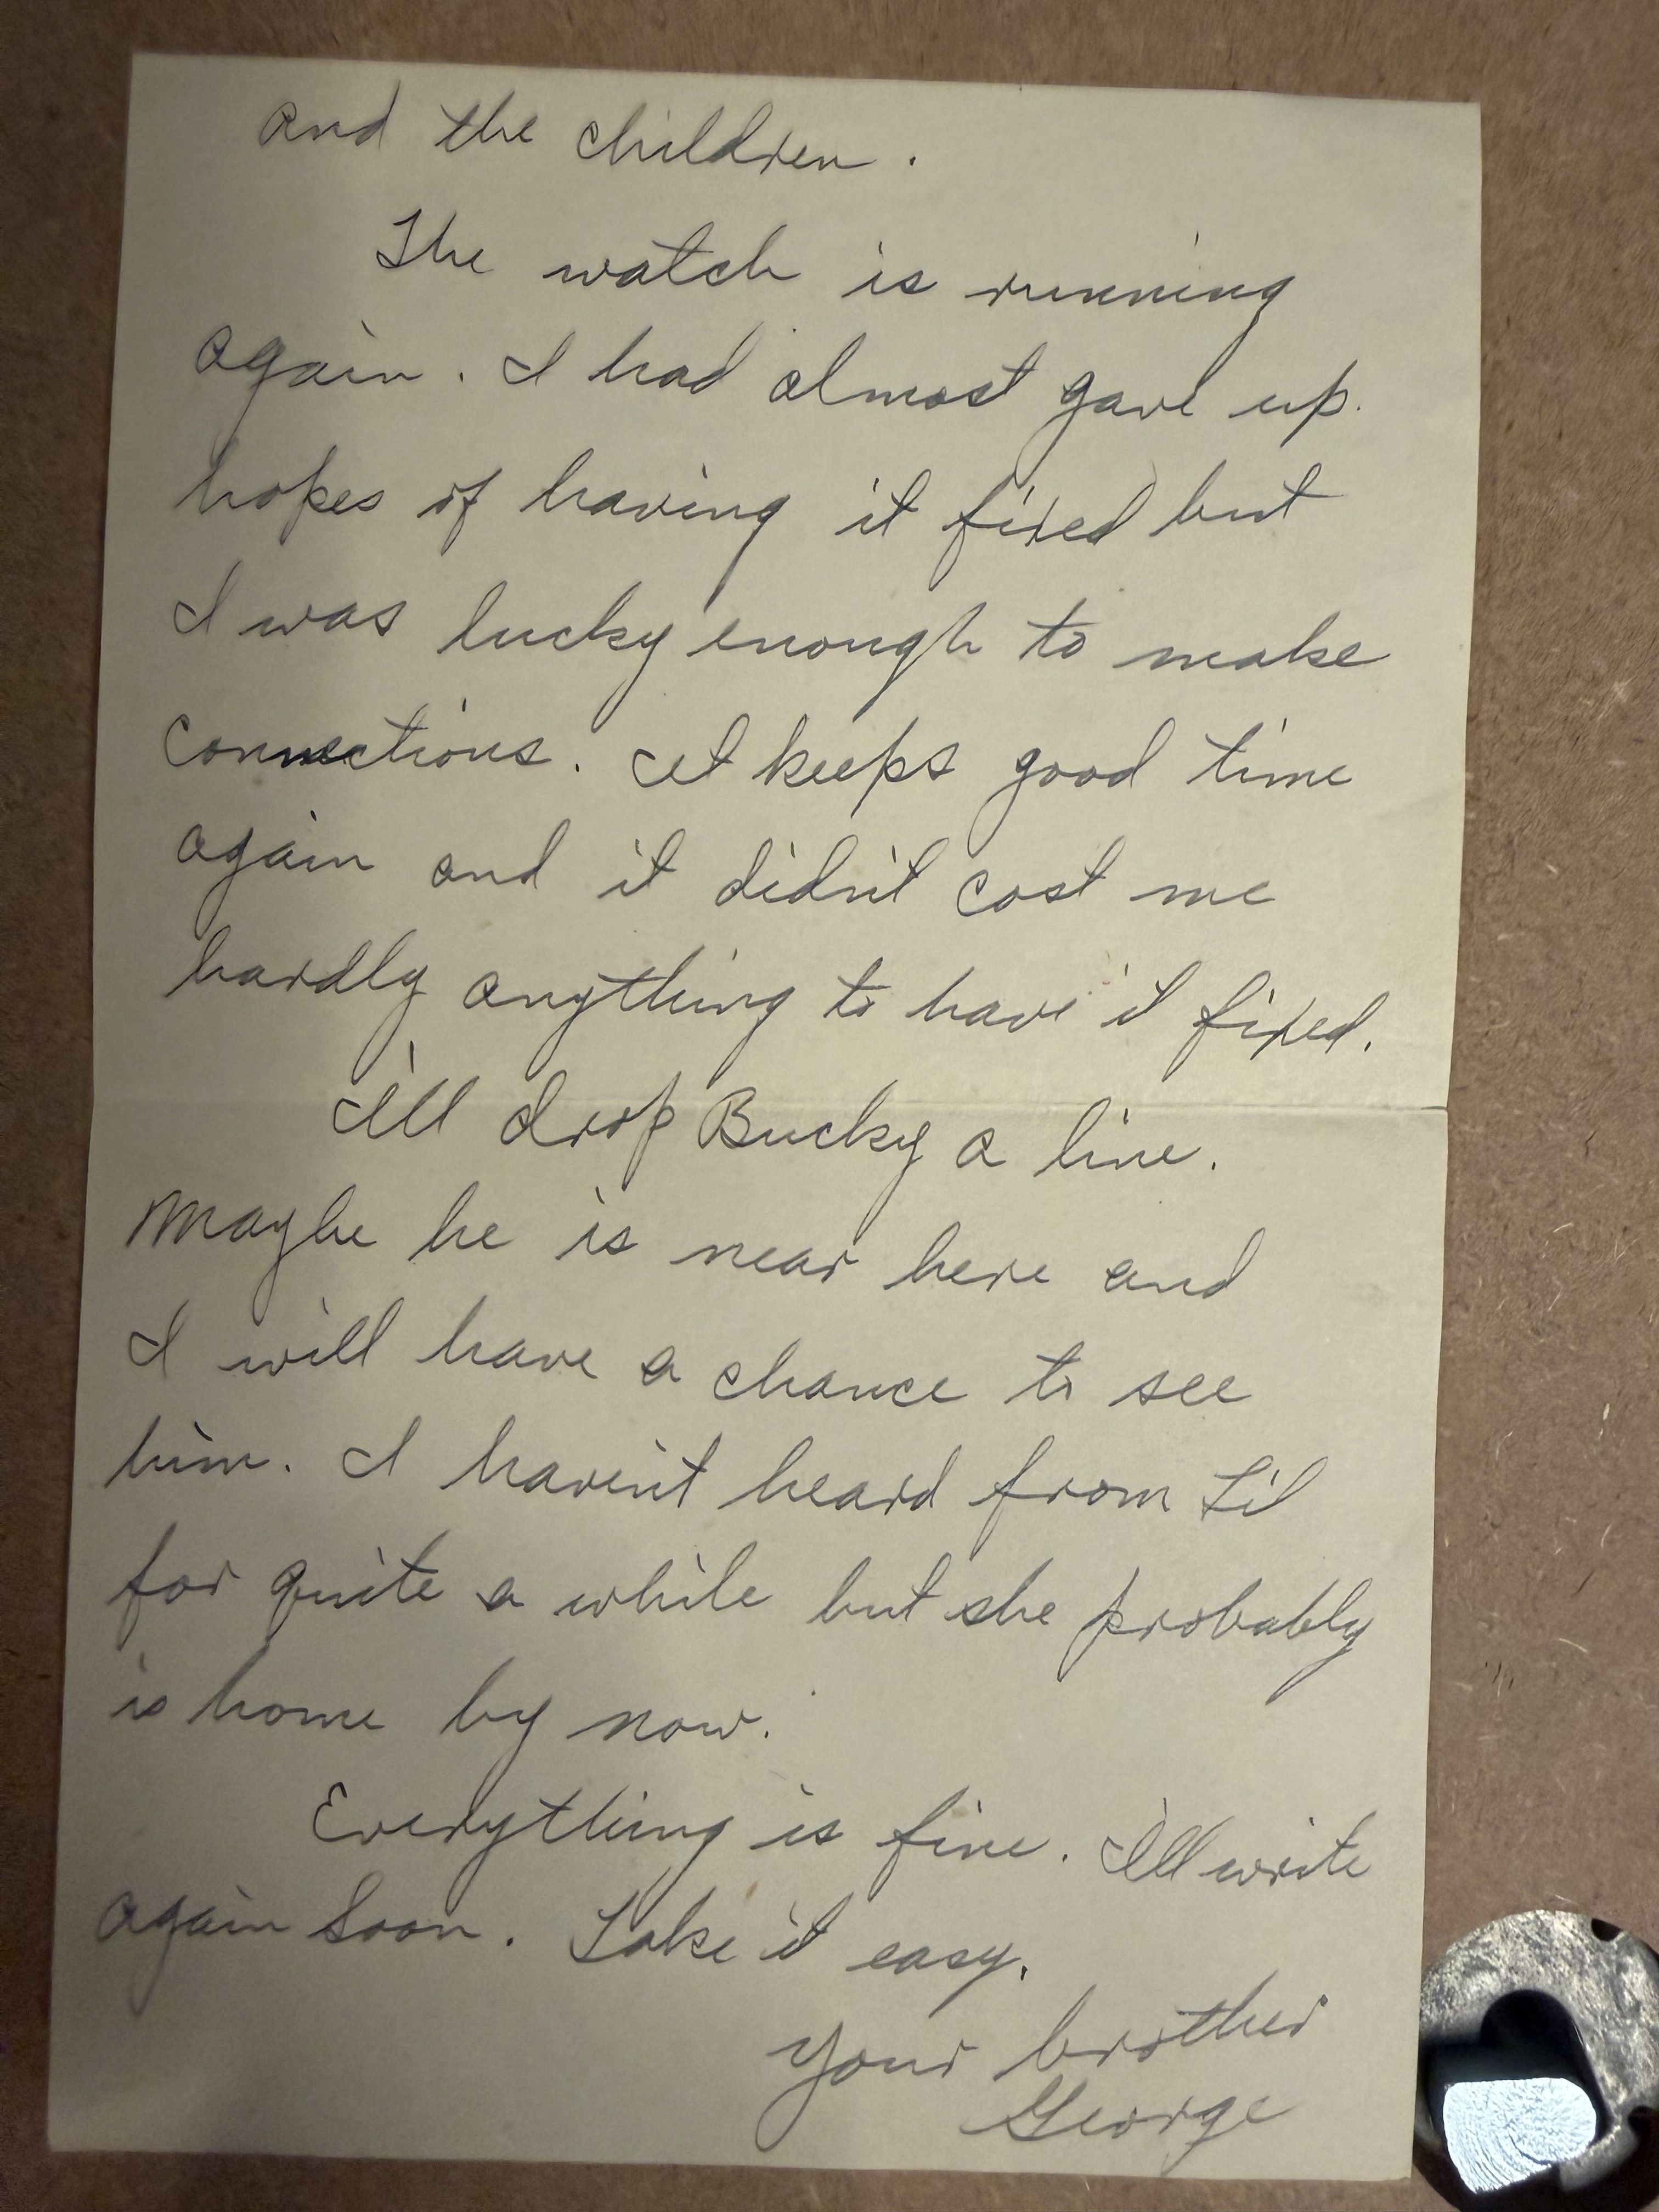 and the children.
The watch is running
again. I had almost gave up
hopes of having it fixed but
I was lucky enough to make
connections. It keeps good time
again and it didn't cost me
hardly anything to have it fixed.
I'll drop Bucky a line.
Maybe he is near here and
I will have a chance to see
him. I haven't heard from Lil
for quite a while but she probably
is home by now.
Everything is fine. I'll write
again soon. Take it easy.
Your brother
George